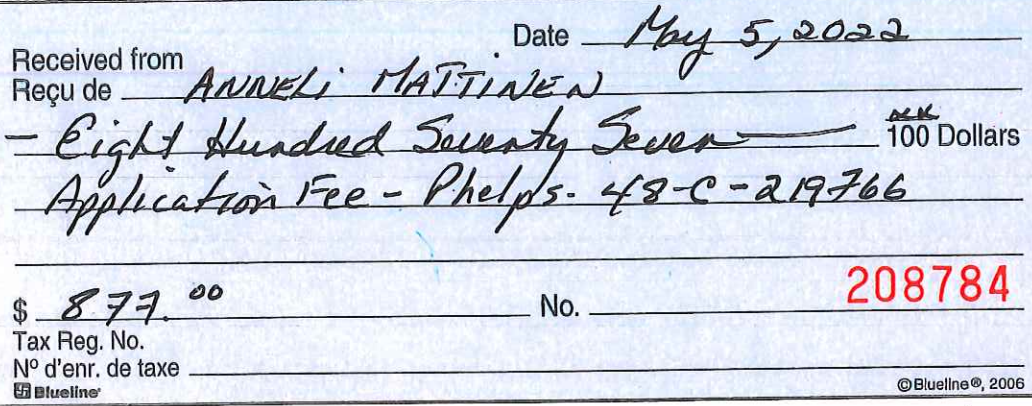 Date May 5, 2022
Received from
Reçu de ANNELi MATTiNEN
- Eight Hundred Seventy Seven — 100 Dollars
Application Fee - Phelps - 48-C-219766
$ 877.00 No. 208784
Tax Reg. No.
Nº d'enr. de taxe
Blueline © Blueline®, 2006